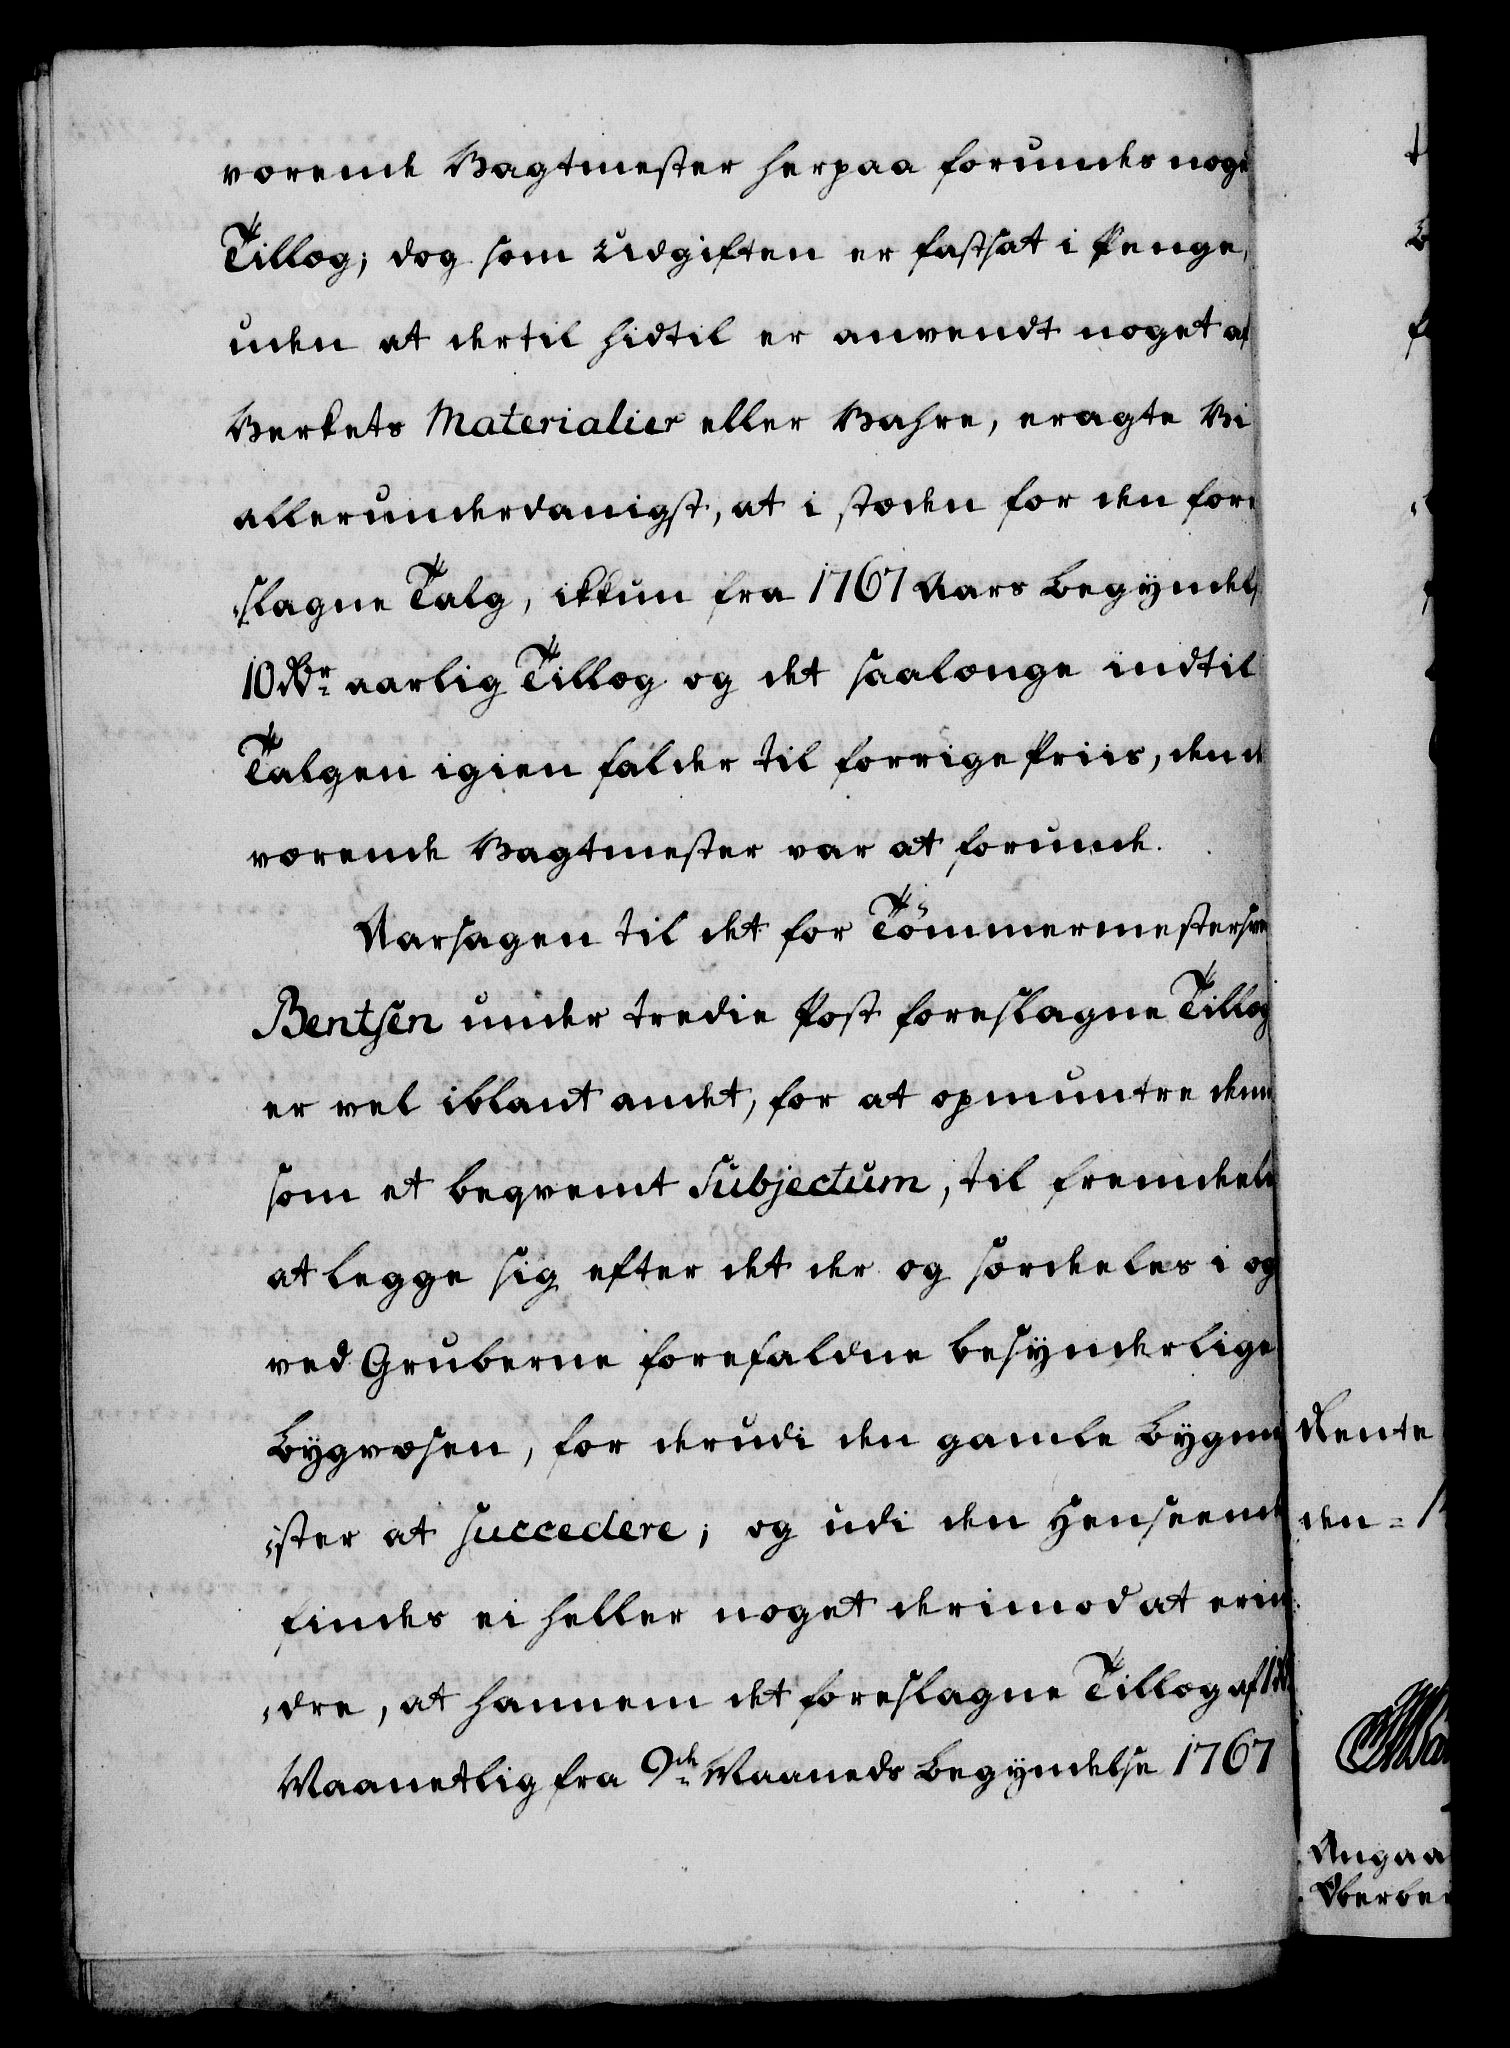 værende Vagtmester herpaa forundes noge
Tillæg; dog som Udgiften er fastsat i Penge,
uden at dertil hidtil er anvendt noget af
Verkets Materialier eller Vahre, eragte Vi
allerunderdanigst, at i stæden for den fore
slagne Talg, ikkun fra 1767 Aars Begyndels
10 Rdr aarlig Tillæg og det saalænge indtil
Talgen igien falder til forrige Priis, den n
værende Vagtmester var at forunde.
Aarsagen til det for Tömmermestersve
Bentsen under tredie Post foreslagne Tillæg
er vel iblant andet, for at opmuntre denn
som et beqvemt Subjectum, til fremdele
at legge sig efter det der og særdeles i og
ved Gruberne forefaldne besynderlige
Bygvæsen, for derudi den gamle Bygme
ster at succedere; og udi den Henseende
findes ei heller noget derimod at erin
dre, at hannem det foreslagne Tillæg af 1 Rd
Maanetlig fra 9de Maaneds Begyndelse 1767
Rente
den
Angaa
Oberber